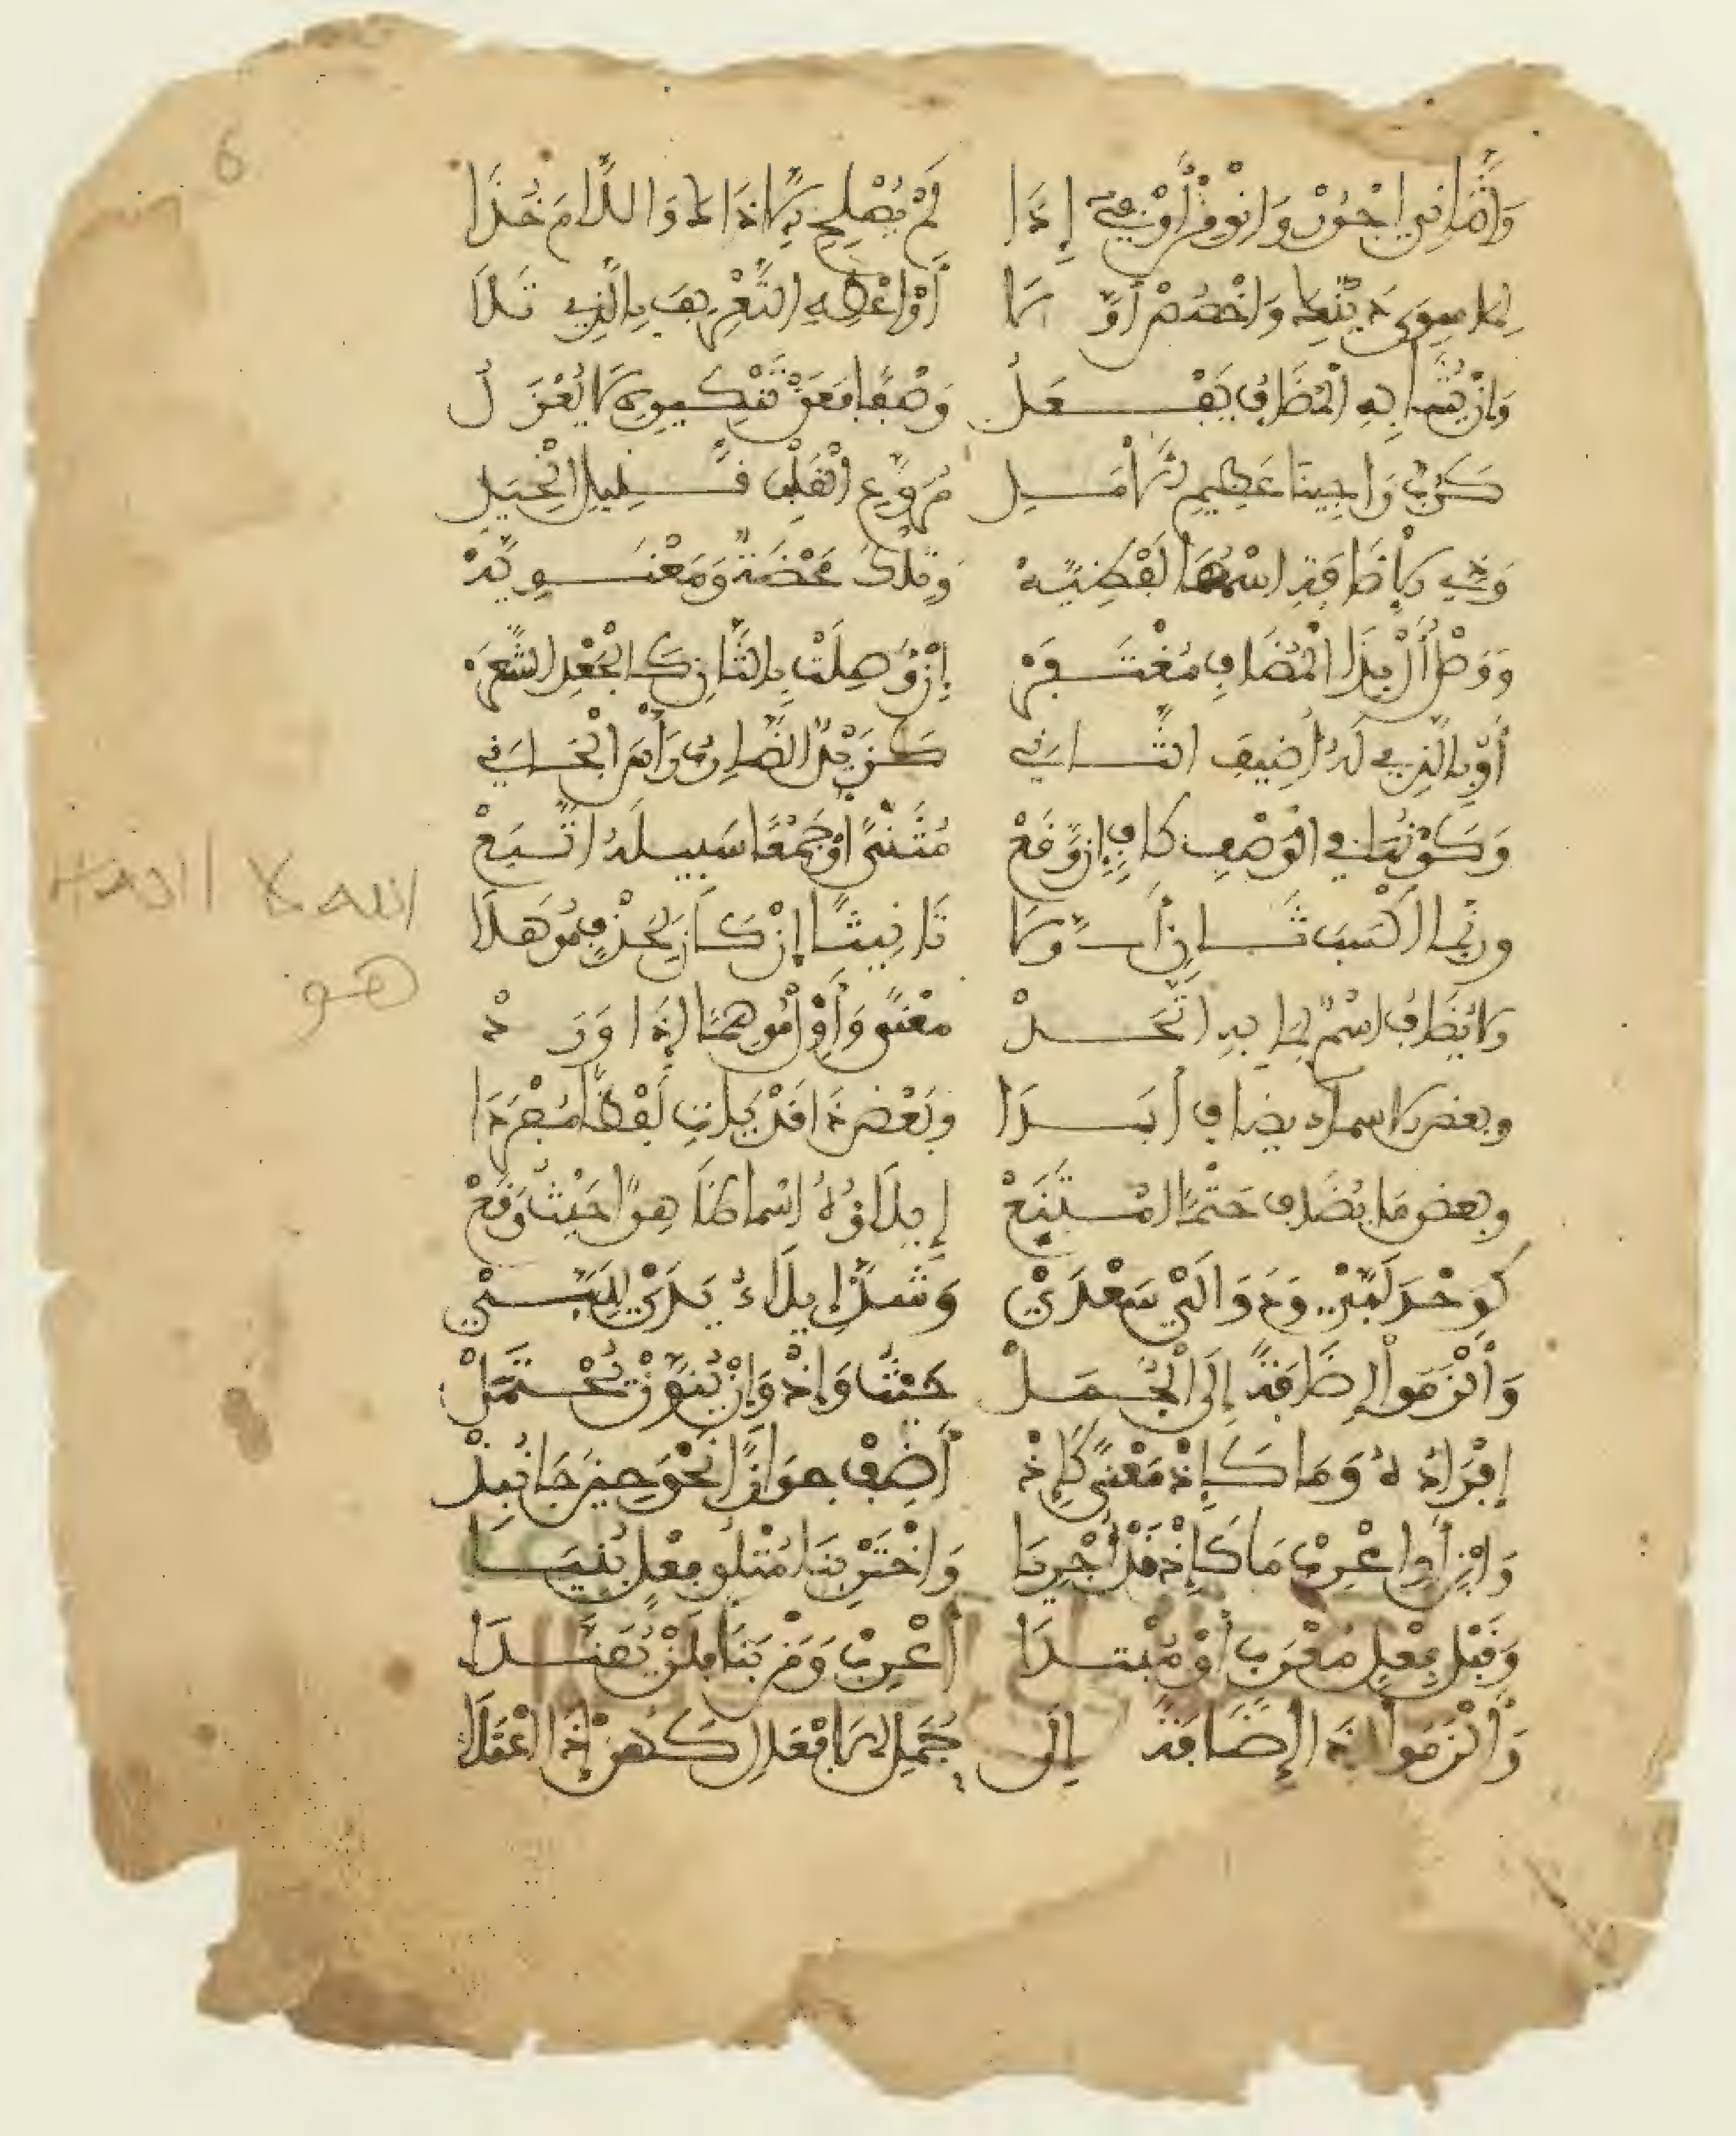 6
وَالثَّانِيَ اجْرُرْ وَانْوِ مِنْ أَوْ فِي إِذَا لَمْ يَصْلُحِ إِلَّا ذَاكَ وَاللَّامَ خُذَا
لِمَا سِوَى ذَيْنِكَ وَاخْصُصْ أَوَّلَا أَوْ أَعْطِهِ التَّعْرِيفَ بِالَّذِي تَلَا
وَإِنْ يُشَابِهِ الْمُضَافُ يَفْعَلُ وَصْفًا فَعَنْ تَنْكِيرِهِ لَا يُعْزَلُ
كَرُبَّ رَاجِينَا عَظِيمِ الْأَمَلِ مُرَوَّعِ الْقَلْبِ قَلِيلِ الْحِيَلِ
وَذِي الْإِضَافَةِ اسْمُهَا لَفْظِيَّهْ وَتِلْكَ مَحْضَةٌ وَمَعْنَوِيَّهْ
وَوَصْلُ أَلْ بِذَا الْمُضَافِ مُغْتَفَرْ إِنْ وُصِلَتْ بِالثَّانِ كَالْجَعْدِ الشَّعَرْ
أَوْ بِالَّذِي لَهُ أُضِيفَ الثَّانِي كَزَيْدٌ الضَّارِبُ رَأْسَ الْجَانِي
وَكَوْنُهَا فِي الْوَصْفِ كَافٍ إِنْ وَقَعْ مُثَنًّى أَوْ جَمْعًا سَبِيلَهُ اتَّبَعْ
وربما أكسب ثان أولا تأنيثا إن كان لحذف موهلا
ولا يضاف اسم لما به اتحد معنى وأول موهما إذا ورد
وبعض الاسماء يضاف أبدا وبعض ذا قد يات لفظا مفردا
وبعض ما يضاف حتما امتنع إيلاؤه اسما ظاهرا حيث وقع
كَوَحْدَ لَبَّيْ وَدَوَالَيْ سَعْدَيْ وَشَذَّ إِيلَاءُ يَدَيْ لِلَبَّيْ
وَأَلْزَمُوا إِضَافَةً إِلَى الْجُمَلْ حَيْثُ وَإِذْ وَإِنْ يُنَوَّنْ يُحْتَمَلْ
إِفْرَادُ إِذْ وَمَا كَإِذْ مَعْنًى كَإِذْ أَضِفْ جَوَازًا نَحْوَ حِينَ جَا نُبِذْ
وَابْنِ أَوِ اعْرِبْ مَا كَإِذْ قَدْ أُجْرِيَا وَاخْتَرْ بِنَا مَتْلُوِّ فِعْلٍ بُنِيَا
وَقَبْلَ فِعْلٍ مُعْرَبٍ أَوْ مُبْتَدَا أَعْرِبْ وَمَنْ بَنَى فَلَنْ يُفَنَّدَا
وَأَلْزَمُوا إِذَا إِضَافَةً إِلَى جُمَلِ الْأَفْعَالِ كَهُنْ إِذَا اعْتَلَى
الله لا اله
هو